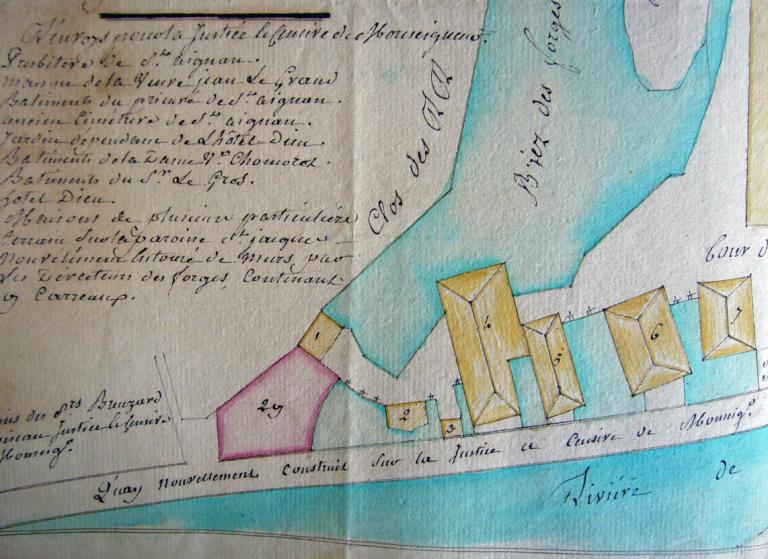 pour la Justice le Censive de Monseigneur.
Presbitere de St. aignan.
maison de la Veuve jean Le Grand
Batiments du prieuré de St. aignan.
ancien Cimetiere de St. aignan.
Jardin dépendant de L'hôtel Dieu.
Batiments de la Dame Ve. Chomorot.
Batiments du Sr. Le Gros.
hotel Dieu.
Maisons de plusieurs particuliers
terrain sur la paroise St. jacques
nouvellement Entouré de murs, par
Les Directeurs des forges, Contenant
29 Carreaux.
Clos des RR
Biez des forges
Cour d
1
2
3
4
5
6
7
29
des Srs Breuzard
Justice le Censive
Monseigr.
Quay nouvellement Construit sur la Justice et Censive de Monseigr.
Riviére de